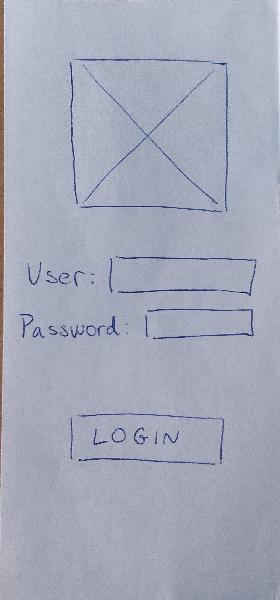 User:
Password:
LOGIN